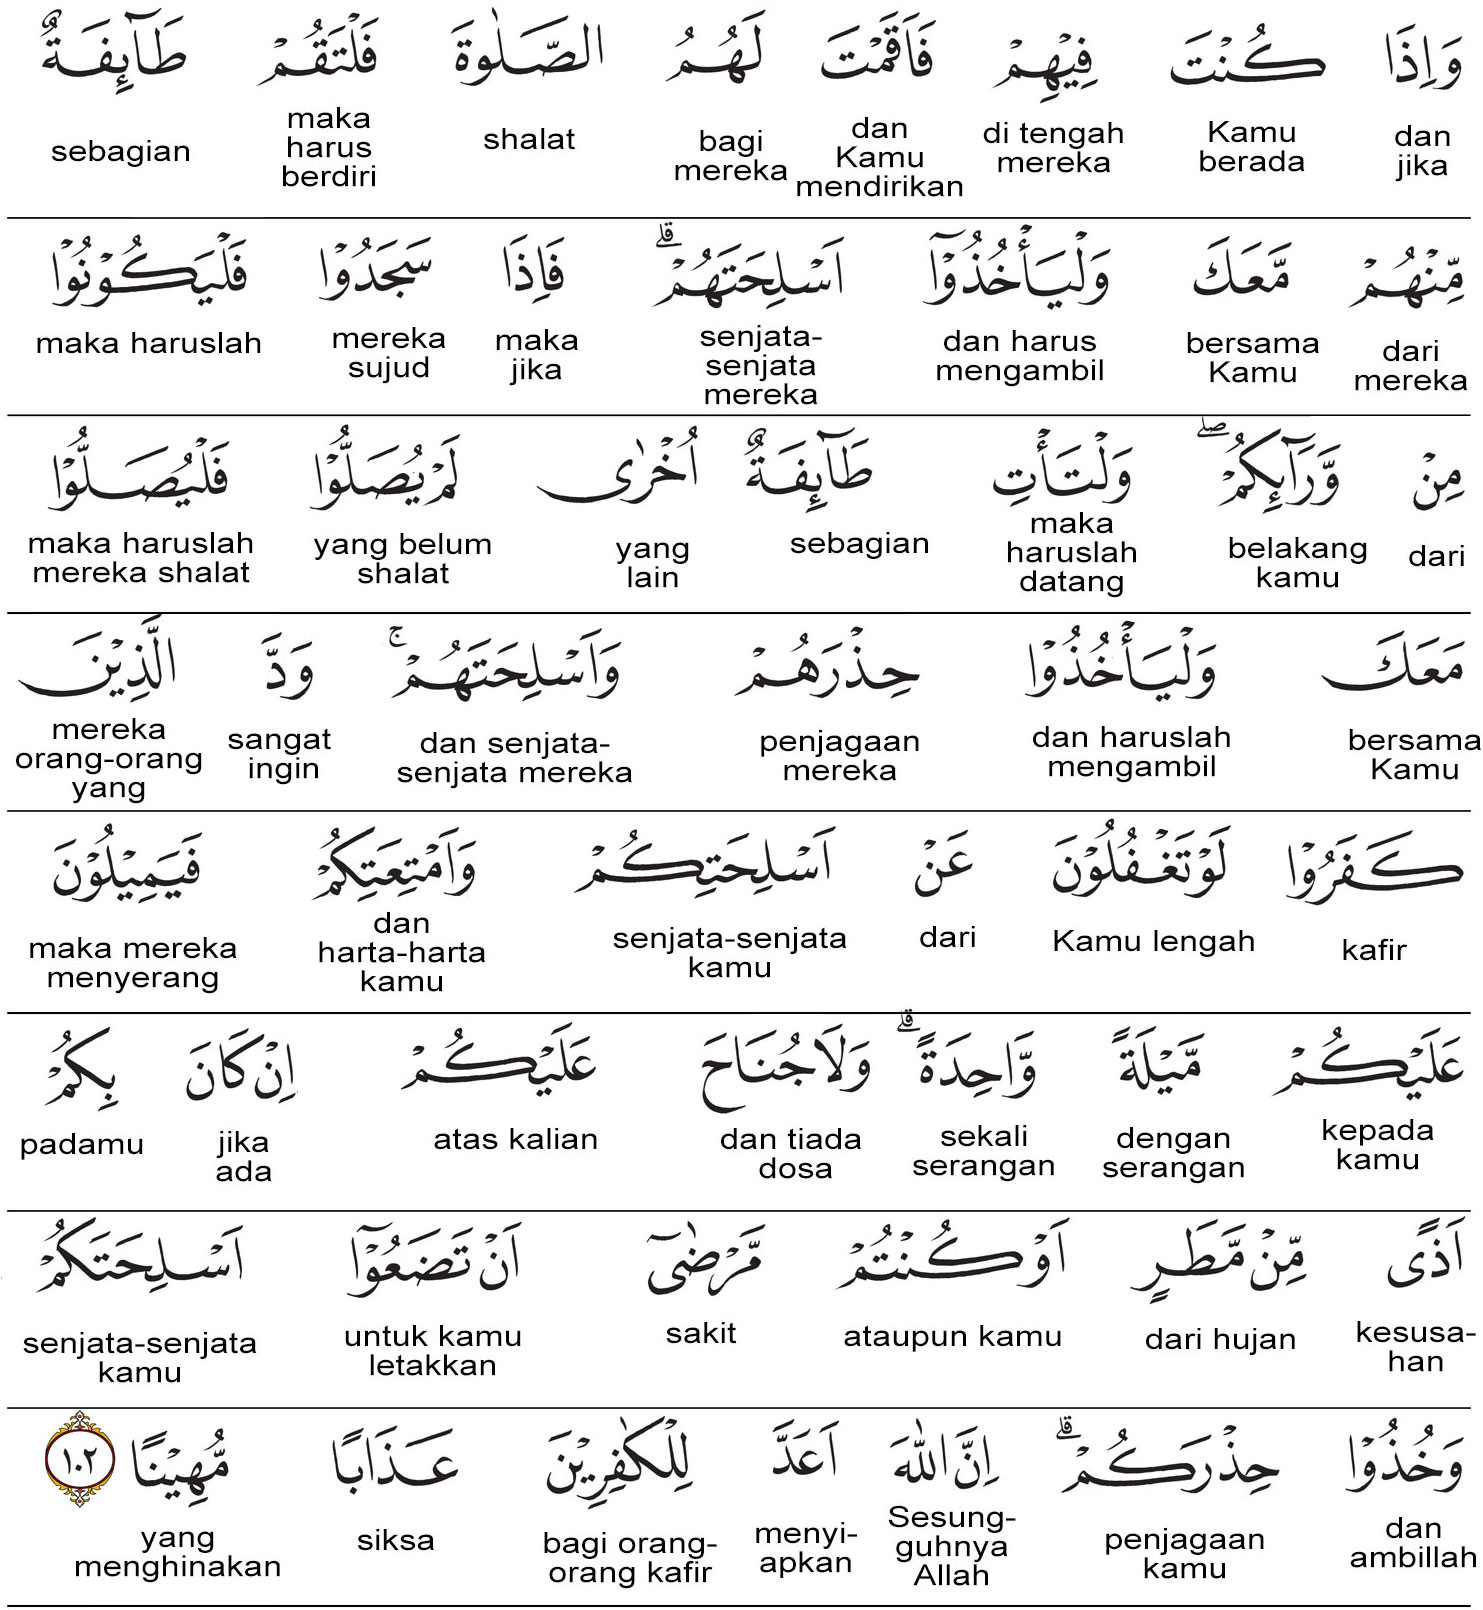 وَاِذَا كُنْتَ فِيْهِمْ فَاَقَمْتَ لَهُمُ الصَّلٰوةَ فَلْتَقُمْ طَاۤىِٕفَةٌ
dan jika Kamu berada di tengah mereka dan Kamu mendirikan bagi mereka shalat maka harus berdiri sebagian
مِّنْهُمْ مَّعَكَ وَلْيَأْخُذُوْٓا اَسْلِحَتَهُمْ ۗ فَاِذَا سَجَدُوْا فَلْيَكُوْنُوْا
dari mereka bersama Kamu dan harus mengambil senjata-senjata mereka maka jika mereka sujud maka haruslah
مِنْ وَّرَاۤىِٕكُمْ ۖ وَلْتَأْتِ طَاۤىِٕفَةٌ اُخْرٰى لَمْ يُصَلُّوْا فَلْيُصَلُّوْا
dari belakang kamu maka haruslah datang sebagian yang lain yang belum shalat maka haruslah mereka shalat
مَعَكَ وَلْيَأْخُذُوْا حِذْرَهُمْ وَاَسْلِحَتَهُمْ ۚ وَدَّ الَّذِيْنَ
bersama Kamu dan haruslah mengambil penjagaan mereka dan senjata-senjata mereka sangat ingin mereka orang-orang yang
كَفَرُوْا لَوْ تَغْفُلُوْنَ عَنْ اَسْلِحَتِكُمْ وَاَمْتِعَتِكُمْ فَيَمِيْلُوْنَ
kafir Kamu lengah dari senjata-senjata kamu dan harta-harta kamu maka mereka menyerang
عَلَيْكُمْ مَّيْلَةً وَّاحِدَةً ۗ وَلَا جُنَاحَ عَلَيْكُمْ اِنْ كَانَ بِكُمْ
kepada kamu dengan serangan sekali serangan dan tiada dosa atas kalian jika ada padamu
اَذًى مِّنْ مَّطَرٍ اَوْ كُنْتُمْ مَّرْضٰىٓ اَنْ تَضَعُوْٓا اَسْلِحَتَكُمْ
kesusa-han dari hujan ataupun kamu sakit untuk kamu letakkan senjata-senjata kamu
وَخُذُوْا حِذْرَكُمْ ۗ اِنَّ اللّٰهَ اَعَدَّ لِلْكٰفِرِيْنَ عَذَابًا مُّهِيْنًا ١٠٢
dan ambillah penjagaan kamu Sesung-guhnya Allah menyi-apkan bagi orang-orang kafir siksa yang menghinakan